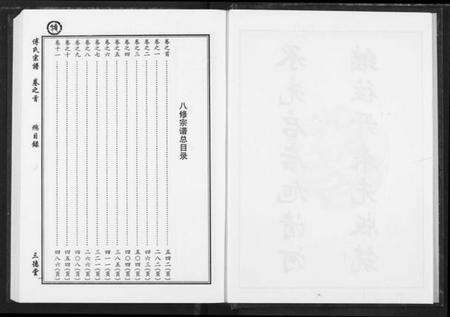 八修宗谱总目录
卷之首……五四二(页)
卷之一……二八二(页)
卷之二……四六三(页)
卷之三……五〇四(页)
卷之四……四〇四(页)
卷之五……三八五(页)
卷之六……四一一(页)
卷之七……三二一(页)
卷之八……二六六(页)
卷之九……四〇八(页)
卷之十……四五四(页)
卷十一……四八六(页)
傅
傅氏宗譜 卷之首 總目錄 三德堂